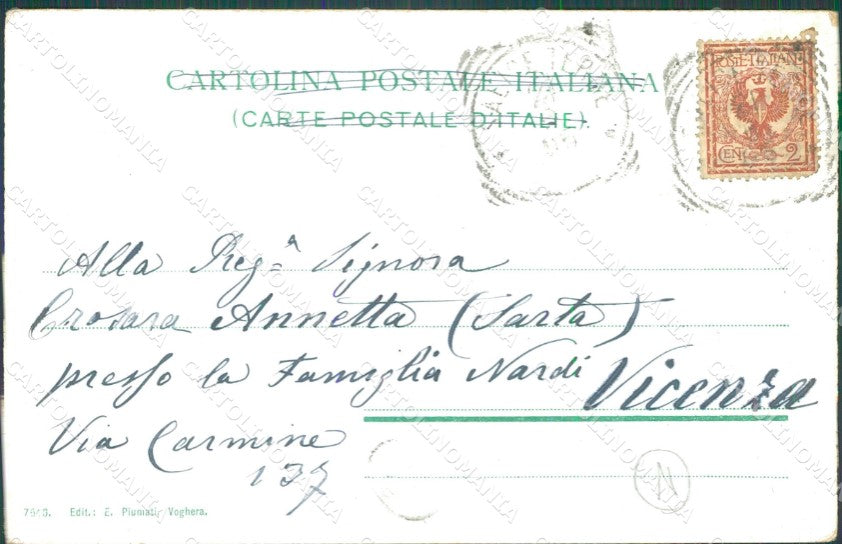 CARTOLINA POSTALE ITALIANA
(CARTE POSTALE D'ITALIE).
POSTE ITALIANE
CEN. 2
SALICE TERME
Alla Regª Signora
Crosara Annetta (Sarta)
presso la Famiglia Nardi Vicenza
Via Carmine
137
Edit.: E. Piumati, Voghera.
CARTOLINOMANIA